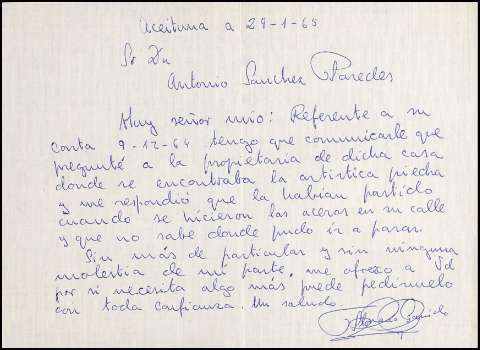 Aceituna a 29-1-65
Sr Dn
Antonio Sanchez Paredes
Muy señor mio: Referente a su
carta 9-12-64 tengo que comunicarle que
pregunté a la propietaria de dicha casa
donde se encontraba la artistica piedra
y me respondió que la habian partido
cuando se hicieron las aceras en su calle
y que no sabe donde pudo ir a parar.
Sin más de particular y sin ninguna
molestia de mi parte, me ofrezco a Vd
por si necesita algo más puede pedirmelo
con toda confianza. Un saludo.